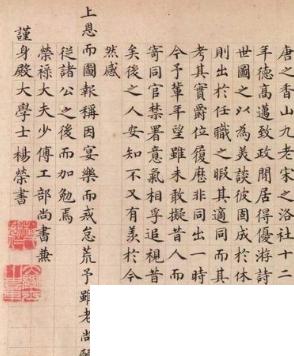 唐之香山九老宋之洛社十二
年德高邁致政閒居得優游詩
世國之以為美談彼固成於休
則出於任職之暇其適同而其
考其實爵位履歷非同出一時
今予輩年望雖未敢擬昔人而
寄同官禁署意氣相孚追視昔
矣後之人安知不又有羨於今
然感
上恩而圖報稱因宴樂而戒怠荒予雖老尚
從諸公之後而加勉焉
榮祿大夫少傅工部尚書兼
謹身殿大學士楊榮書